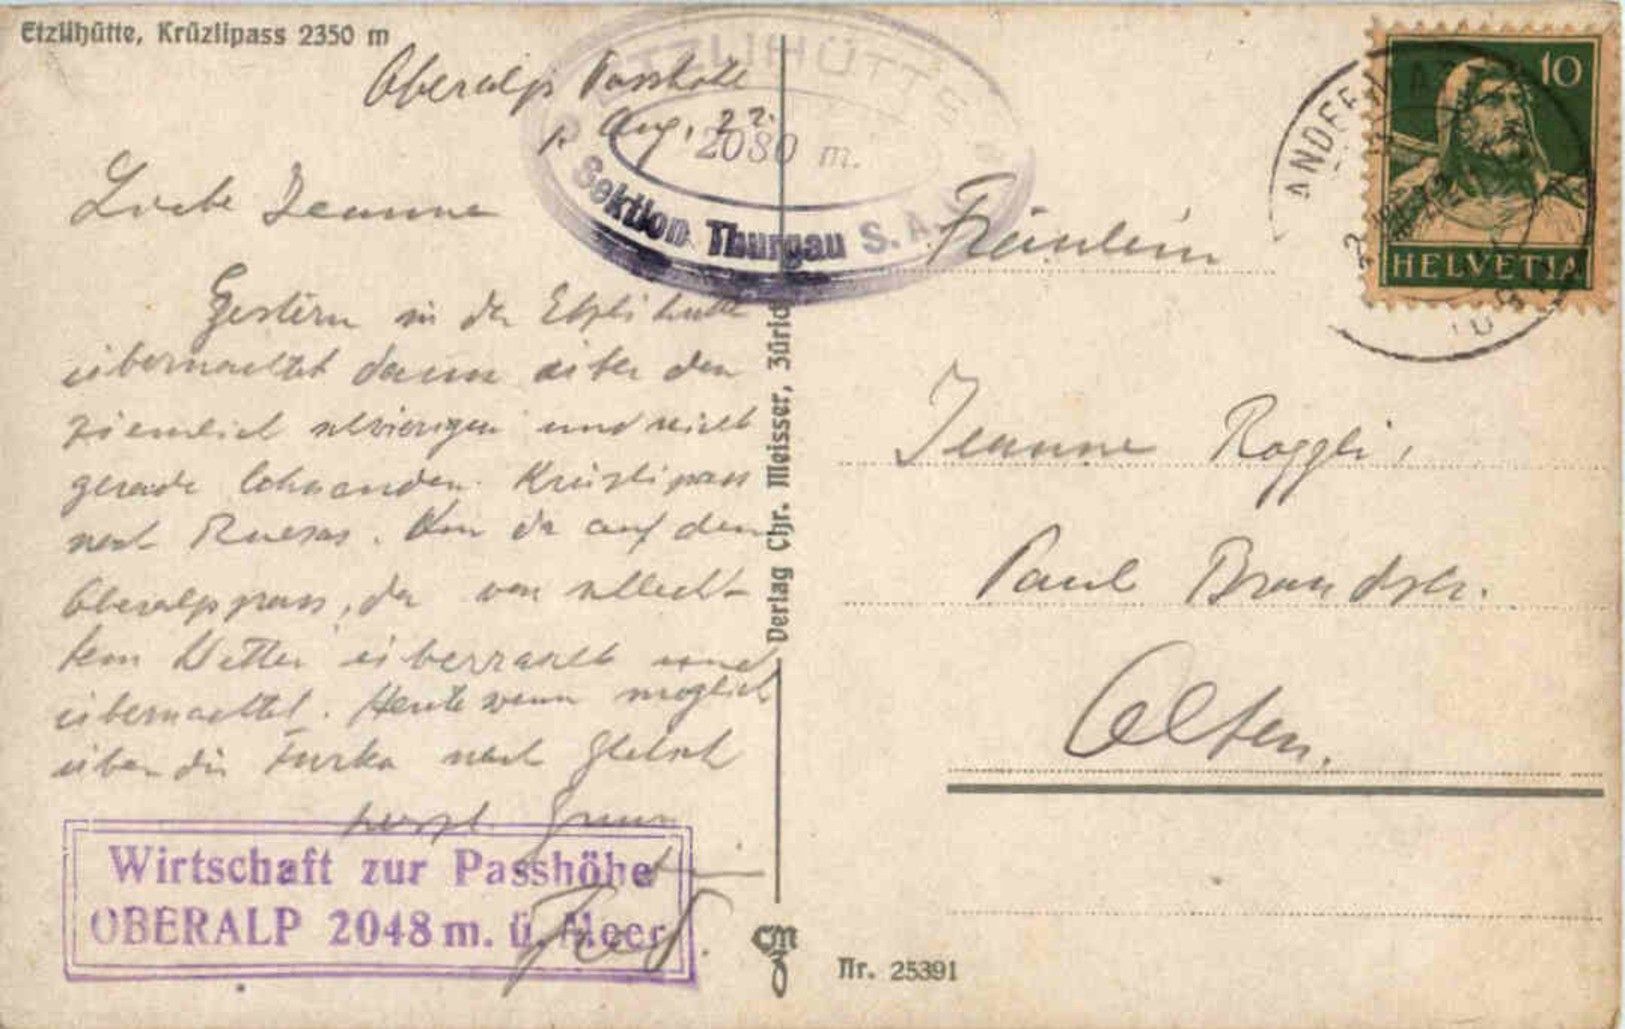 Etzlihütte, Krüzlipass 2350 m
Oberalp Passhöhe
Aug. 22.
ETZLIHÜTTE
2080 m.
Sektion Thurgau S. A.
Liebe Jeanne
Gestern in der Etzlihütte
übernachtet dann über den
ziemlich schwierigen und nicht
gerade lohnenden Krüzlipass
nach Rueras. Von da auf den
Oberalppass, da von schlech-
tem Wetter überrascht und
übernachtet. Heute wenn möglich
über die Furka nach Gletsch
herzl.
Wirtschaft zur Passhöhe
OBERALP 2048 m. ü. Meer
Verlag Chr. Meisser, Zürich
CM
Nr. 25391
10
HELVETIA
ANDERMATT
Fräulein
Jeanne Roggli,
Paul Brandstr.
Olten.